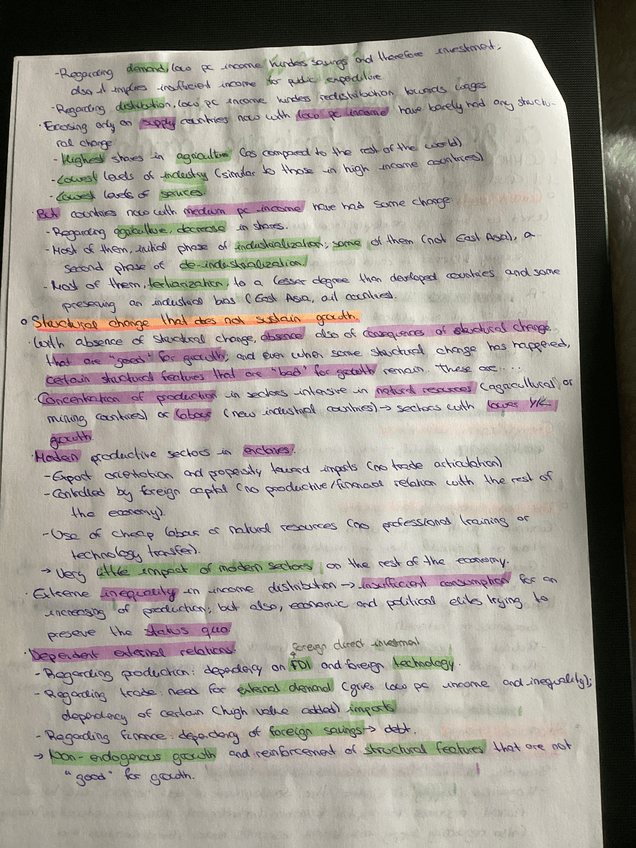 - Regarding demand, low pc income hinders savings and therefore investment,
also it implies insufficient income for public expenditure
- Regarding distribution, low pc income hinders redistribution towards wages
· Focusing only on supply countries now with low pc income have barely had any structu-
ral change
- Highest shares in agriculture (as compared to the rest of the world)
- Lowest levels of industry (similar to those in high income countries)
- Lowest levels of services.
· But countries now with medium pc income have had some change
- Regarding agriculture, decrease in shares.
- Most of them, initial phase of industrialization; some of them (not East Asia), a
second phase of de-industrialization
- Most of them, tertiarization, to a lesser degree than developed countries and some
preserving an industrial bias (East Asia, oil countries).
o Structural change that does not sustain growth.
· With absence of structural change, absence also of consequences of structural change
that are "good" for growth; and even when some structural change has happened,
certain structural features that are "bad" for growth remain. These are....
· Concentration of production in sectors intensive in natural resources (agricultural or
mining countries) or labour (new industrial countries) → sectors with lower Y/L
growth
· Modern productive sectors in enclaves.
- Export orientation and propensity toward imports (no trade articulation)
- Controlled by foreign capital (no productive/financial relation with the rest of
the economy).
- Use of cheap labour or natural resources (no professional training or
technology transfer).
→ Very little impact of modern sectors on the rest of the economy.
· Extreme inequality in income distribution → insufficient consumption for an
increasing of production; but also, economic and political elites trying to
preserve the status quo
foreign direct investment
· Dependent external relations:
- Regarding production: dependency on FDI and foreign technology.
- Regarding trade: need for external demand (given low pc income and inequality);
dependency of certain (high value added) imports
- Regarding finance: dependency of foreign savings → debt.
→ Non-endogenous growth and reinforcement of structural features that are not
"good" for growth.